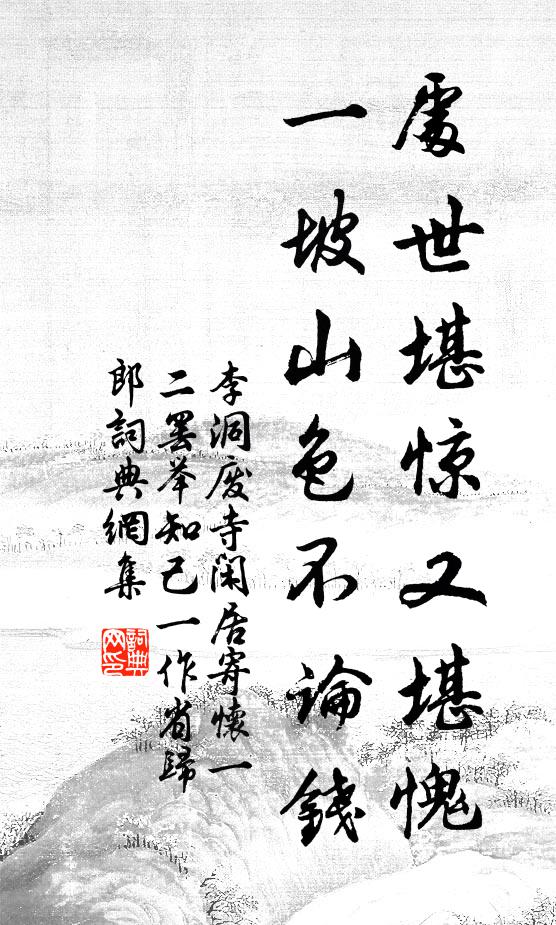 處世堪惊又堪愧
一坡山色不論錢
李洞廢寺閑居寄懷一
二罢举知己一作省歸
郎詞典網集
詞典
网印